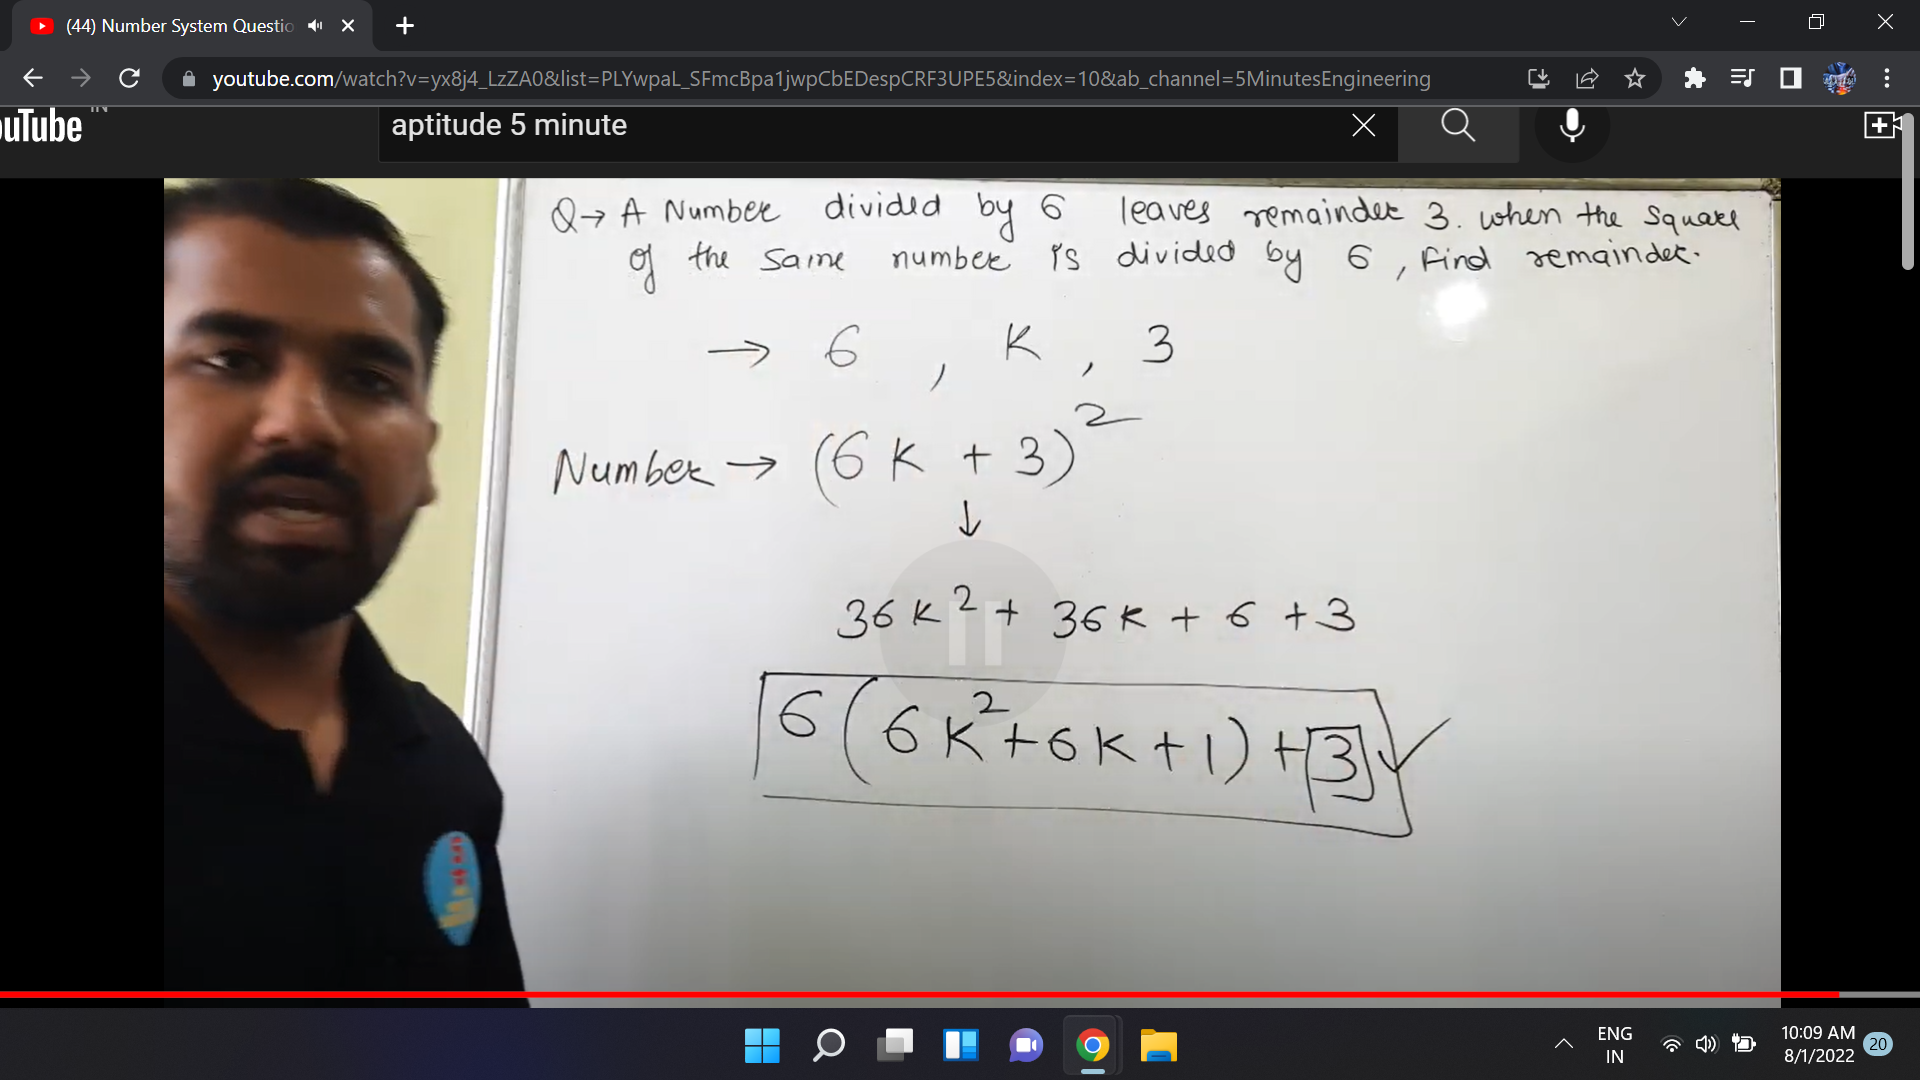 (44) Number System Questio
youtube.com/watch?v=yx8j4_LzZA0&list=PLYwpaL_SFmcBpa1jwpCbEDespCRF3UPE5&index=10&ab_channel=5MinutesEngineering
ouTube IN
aptitude 5 minute
Q→ A Number divided by 6 leaves remainder 3. when the square
of the same number is divided by 6, find remainder.
→ 6 , K , 3
Number → (6K + 3)²
↓
36K² + 36K + 6 + 3
6(6K²+6K+1) + 3 ✓
ENG
IN
10:09 AM
8/1/2022
20